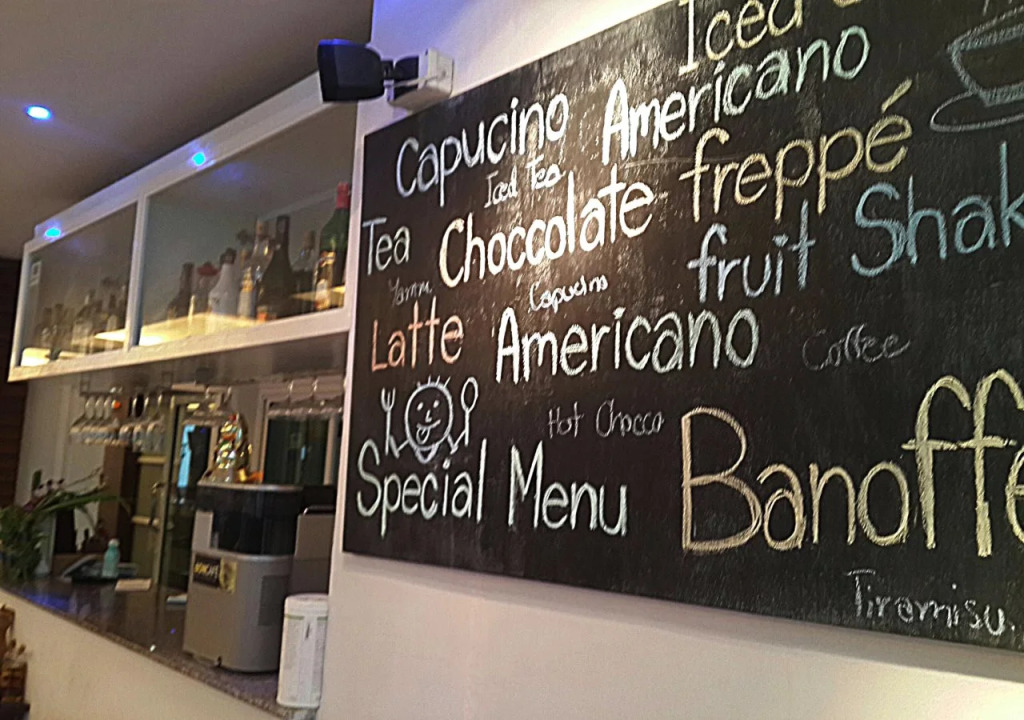 Iced
Capucino Americano
Iced Tea
Tea Choccolate freppé
Yamm
Capucino
fruit Shak
Latte Americano
Coffee
Hot Chocco
Special Menu Banoffe
Tiramisu.
BONCAFE